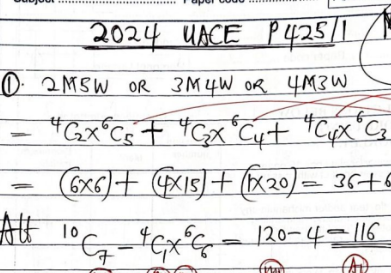 Paper code
2024 UACE P425/1
①. 2M5W OR 3M4W OR 4M3W
= ⁴C₂x⁶C₅ + ⁴C₃x⁶C₄ + ⁴C₄x⁶C₃
= (6x6) + (4x15) + (1x20) = 36+6
Alt ¹⁰C₇ - ⁴C₁x⁶C₆ = 120-4 = 116